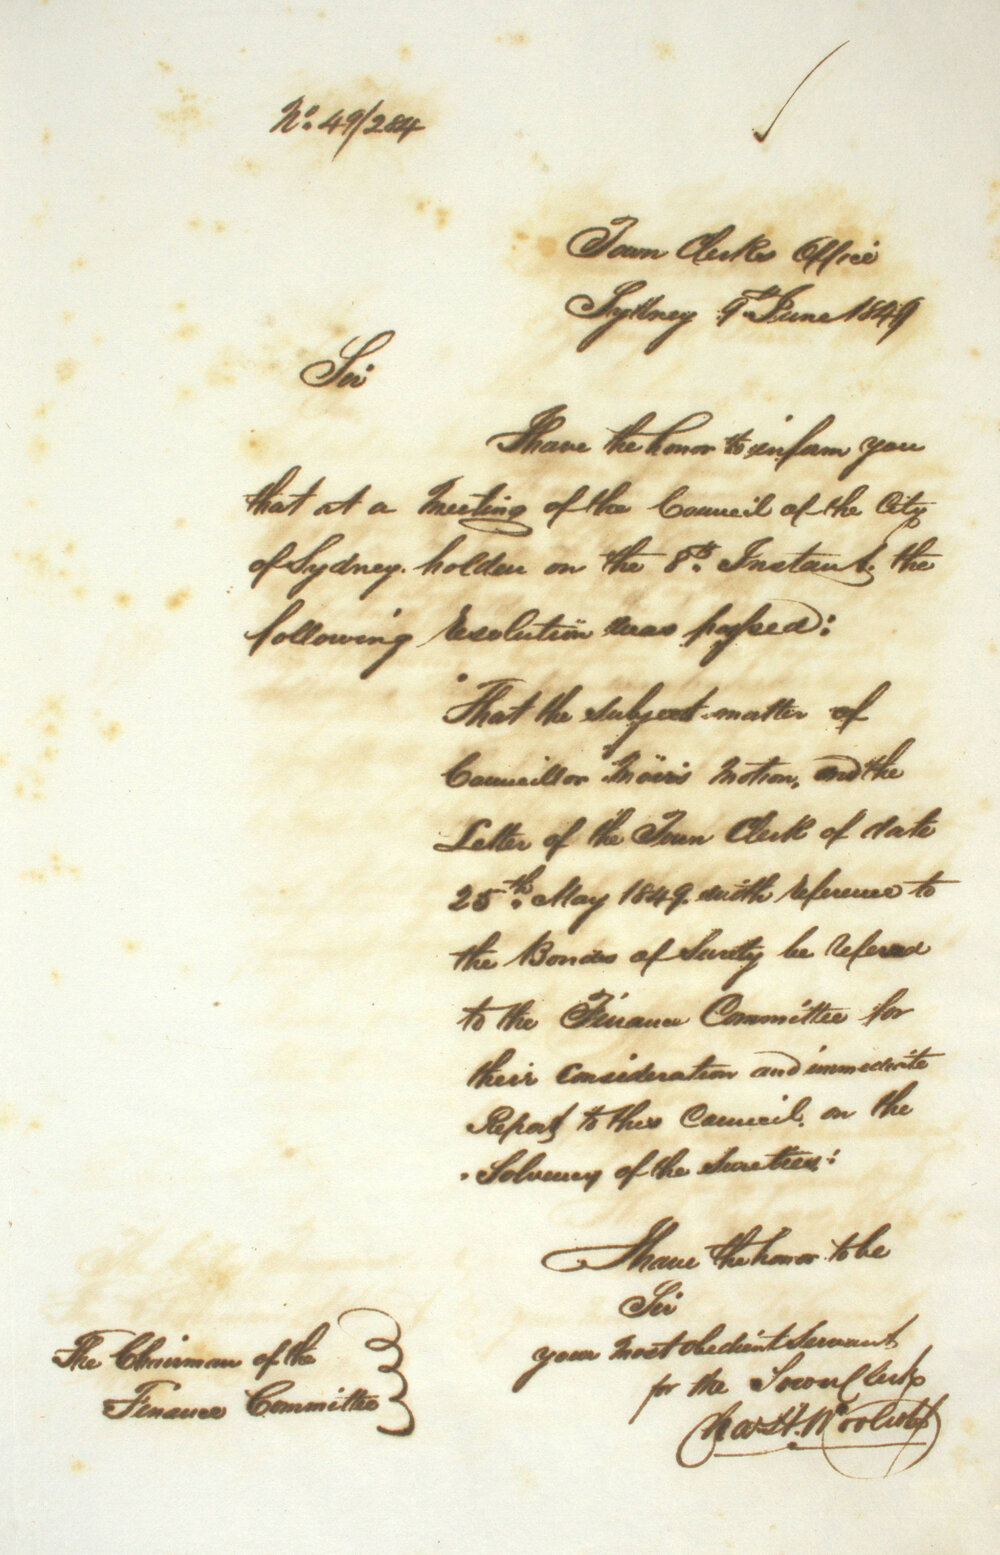 No. 49/284
Town Clerks Office
Sydney 9th June 1849
Sir
I have the honor to inform you
that at a Meeting of the Council of the City
of Sydney holden on the 8th. Instant, the
following Resolution was passed:
"That the subject matter of
Councillor Moirs Motion, and the
Letter of the Town Clerk of date
25th. May 1849. with reference to
the Bonds of Surety be referred
to the Finance Committee for
their consideration and immediate
Report to this Council, on the
Solvency of the Sureties:
I have the honor to be
Sir
your most obedient Servant
for the Town Clerk
Chas H.
The Chairman of the
Finance Committee